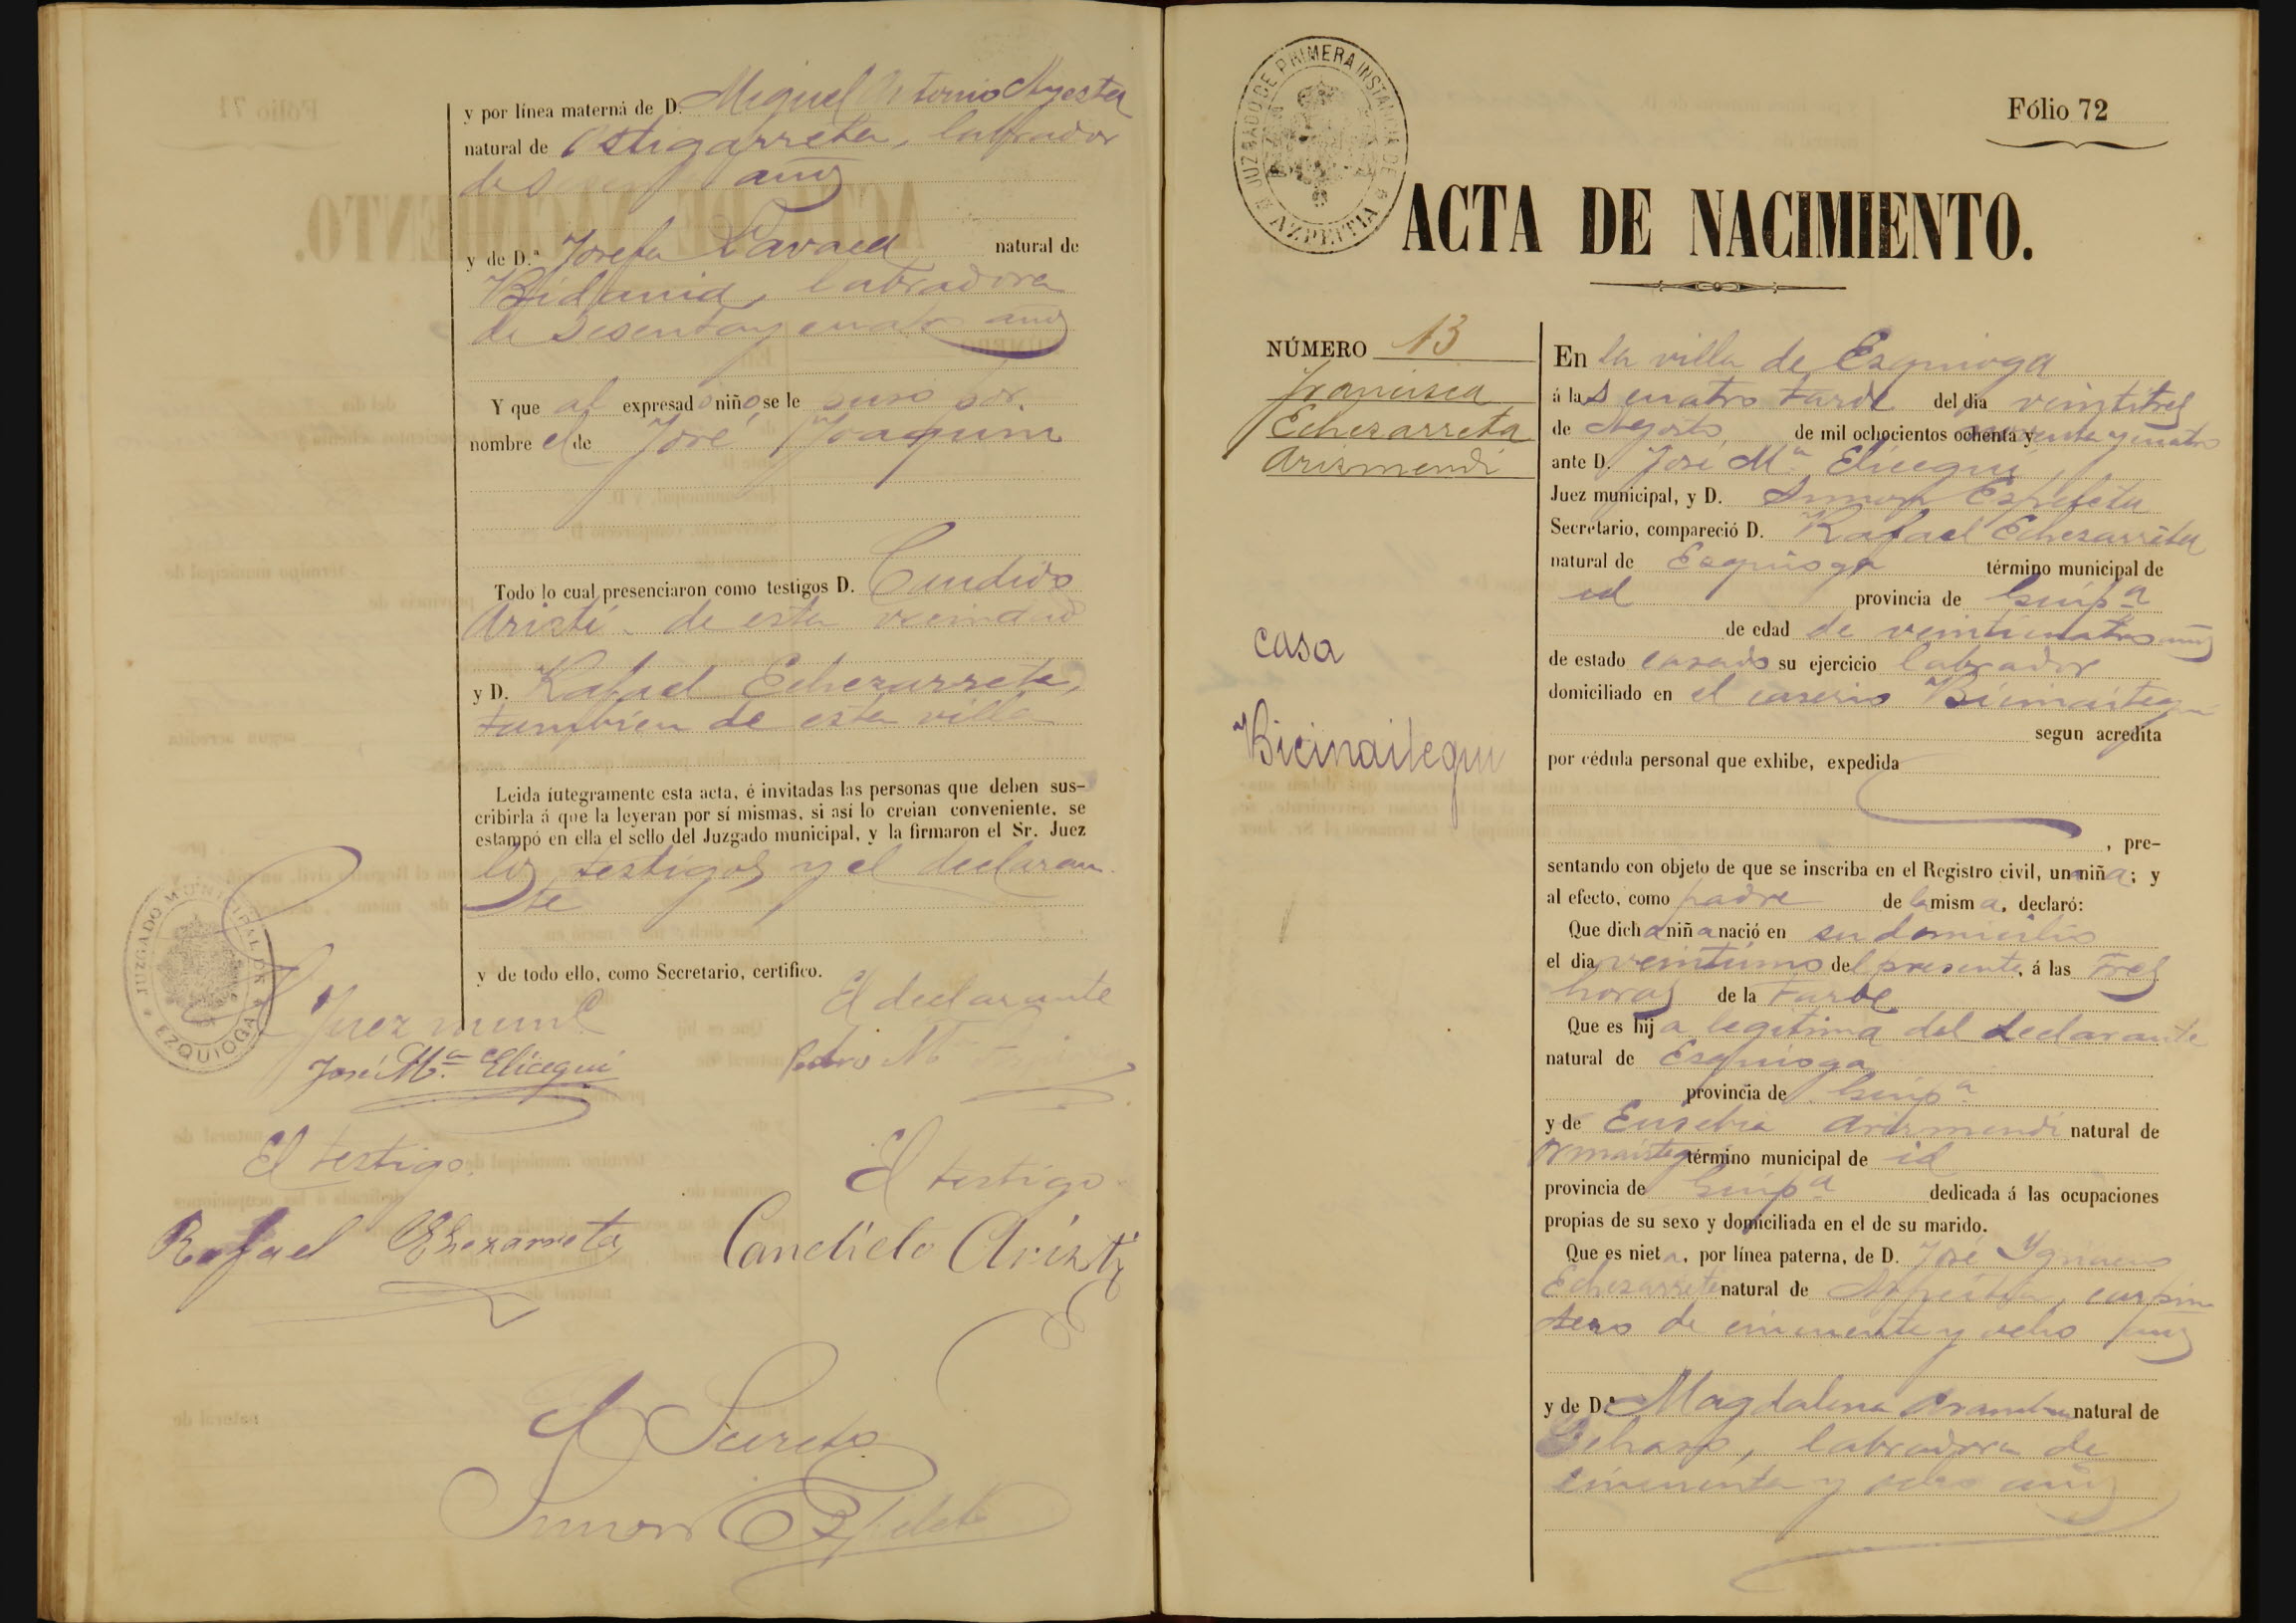 y por línea materna de D. Miguel Antonio Ayesta
natural de Astigarreta, labrador
de años
y de D.ª Josefa Lavaca natural de
Bidania, labradora
de Sesenta y cuatro años
Y que al expresado niño, se le puso por
nombre el de José Joaquin
Todo lo cual presenciaron como testigos D. Candido
Aristi de esta vecindad
y D. Rafael Echezarreta,
tambien de esta villa
Leida íntegramente esta acta, é invitadas las personas que deben sus-
cribirla á que la leyeran por sí mismas, si así lo creian conveniente, se
estampó en ella el sello del Juzgado municipal, y la firmaron el Sr. Juez
los testigos y el declaran
te
y de todo ello, como Secretario, certifico.
JUZGADO MUNICIPAL DE EZQUIOGA
Juez munl
José Mª Elicegui
El declarante
Pedro Mª
El testigo.
Rafael Echezarreta
El testigo.
Candido Arizti
El Secreto
Simon Ezpeleta
JUZGADO DE PRIMERA INSTANCIA DE AZPEITIA
Fólio 72
ACTA DE NACIMIENTO.
NÚMERO 13
Francisca
Echezarreta
Arizmendi
casa
Bicinaitegui
En la villa de Ezquioga
á las cuatro tarde del dia veintitres
de Agosto, de mil ochocientos ochenta y noventa y cuatro
ante D. José Mª Elicegui,
Juez municipal, y D. Simon Ezpeleta
Secretario, compareció D. Rafael Echezarreta
natural de Ezquioga término municipal de
id provincia de Guipª
de edad de veinticuatro años
de estado casado su ejercicio labrador
domiciliado en el caserio Bicinaitegui
segun acredita
por cédula personal que exhibe, expedida
, pre-
sentando con objeto de que se inscriba en el Registro civil, una niña; y
al efecto, como padre de la misma, declaró:
Que dicha niña nació en su domicilio
el dia veintiuno del presente, á las tres
horas de la tarde
Que es hija legitima del declarante
natural de Ezquioga
provincia de Guipª
y de Eusebia Arizmendi natural de
Ormaiztegui término municipal de id
provincia de Guipª dedicada á las ocupaciones
propias de su sexo y domiciliada en el de su marido.
Que es nieta, por línea paterna, de D. José Ygnacio
Echezarreta natural de Azpeitia, carpin
tero de cincuenta y ocho años
y de D.ª Magdalena Aramburu natural de
labradora de
cincuenta y ocho años